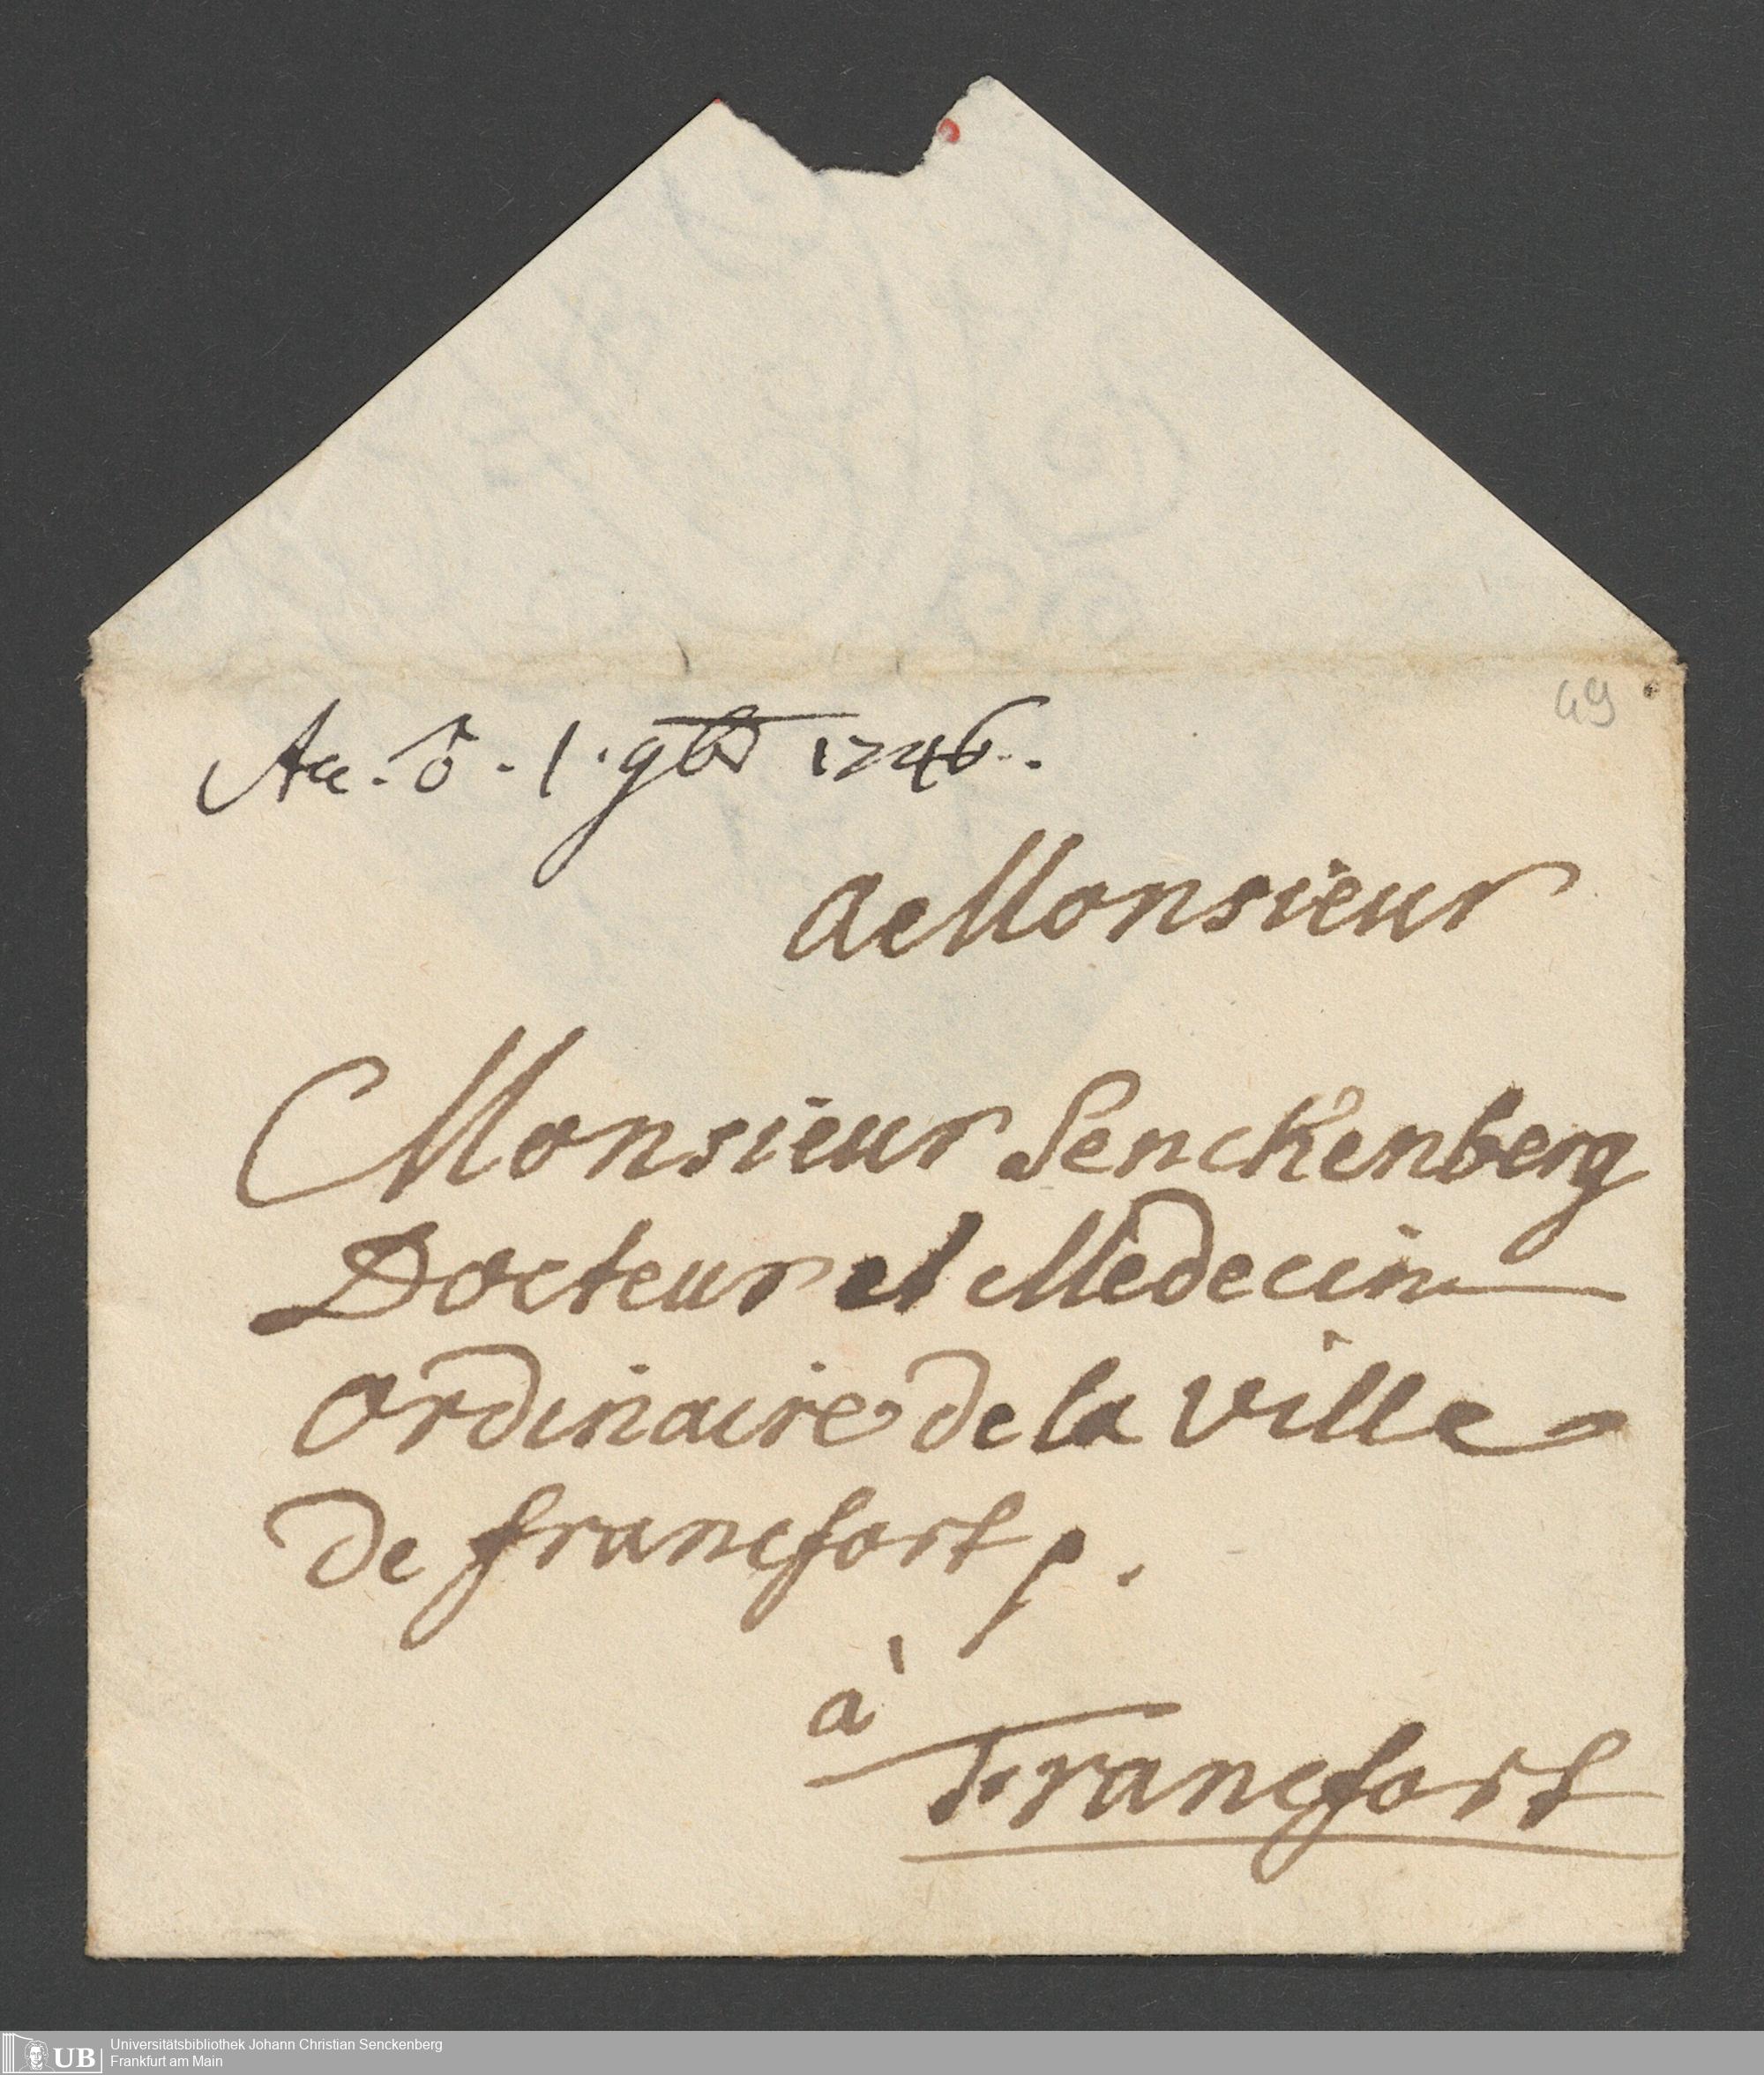 Acc. ♂. 1. 9br 1746.
49
A Monsieur
Monsieur Senckenberg
Docteur et Medecin
ordinaire de la Ville
de francfort p.
à
Francfort
UB Universitätsbibliothek Johann Christian Senckenberg
Frankfurt am Main